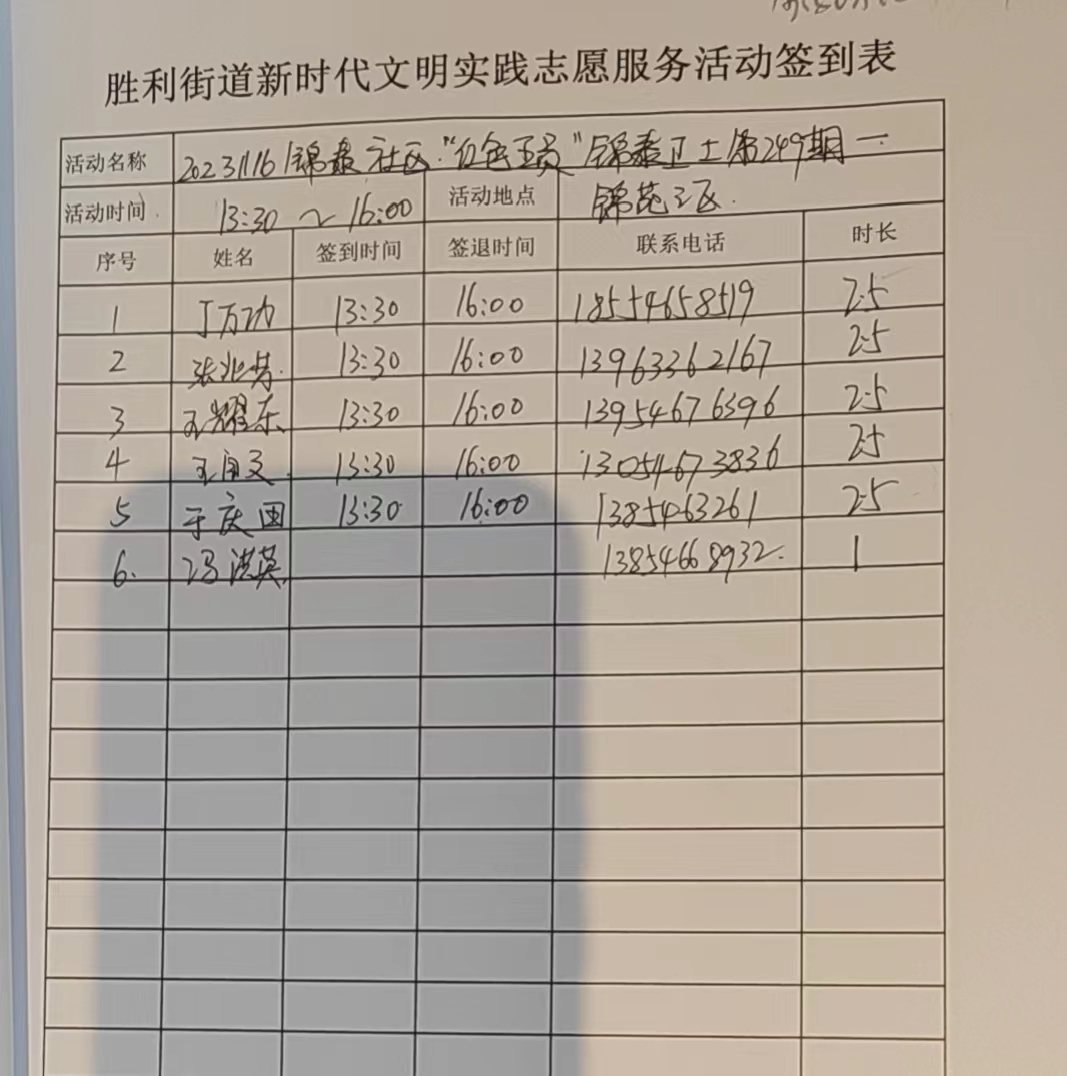 胜利街道新时代文明实践志愿服务活动签到表
活动名称 20231116锦泰社区"红色五员"锦泰卫士第249期一
活动时间 13:30～16:00 活动地点 锦苑三区
序号 姓名 签到时间 签退时间 联系电话 时长
1 丁万功 13:30 16:00 18554658519 2.5
2 张业 13:30 16:00 13963362167 2.5
3 王耀东 13:30 16:00 13954676396 2.5
4 王 文 13:30 16:00 13054673836 2.5
5 于庆国 13:30 16:00 1385463261 2.5
6. 冯洪英 13854668932. 1